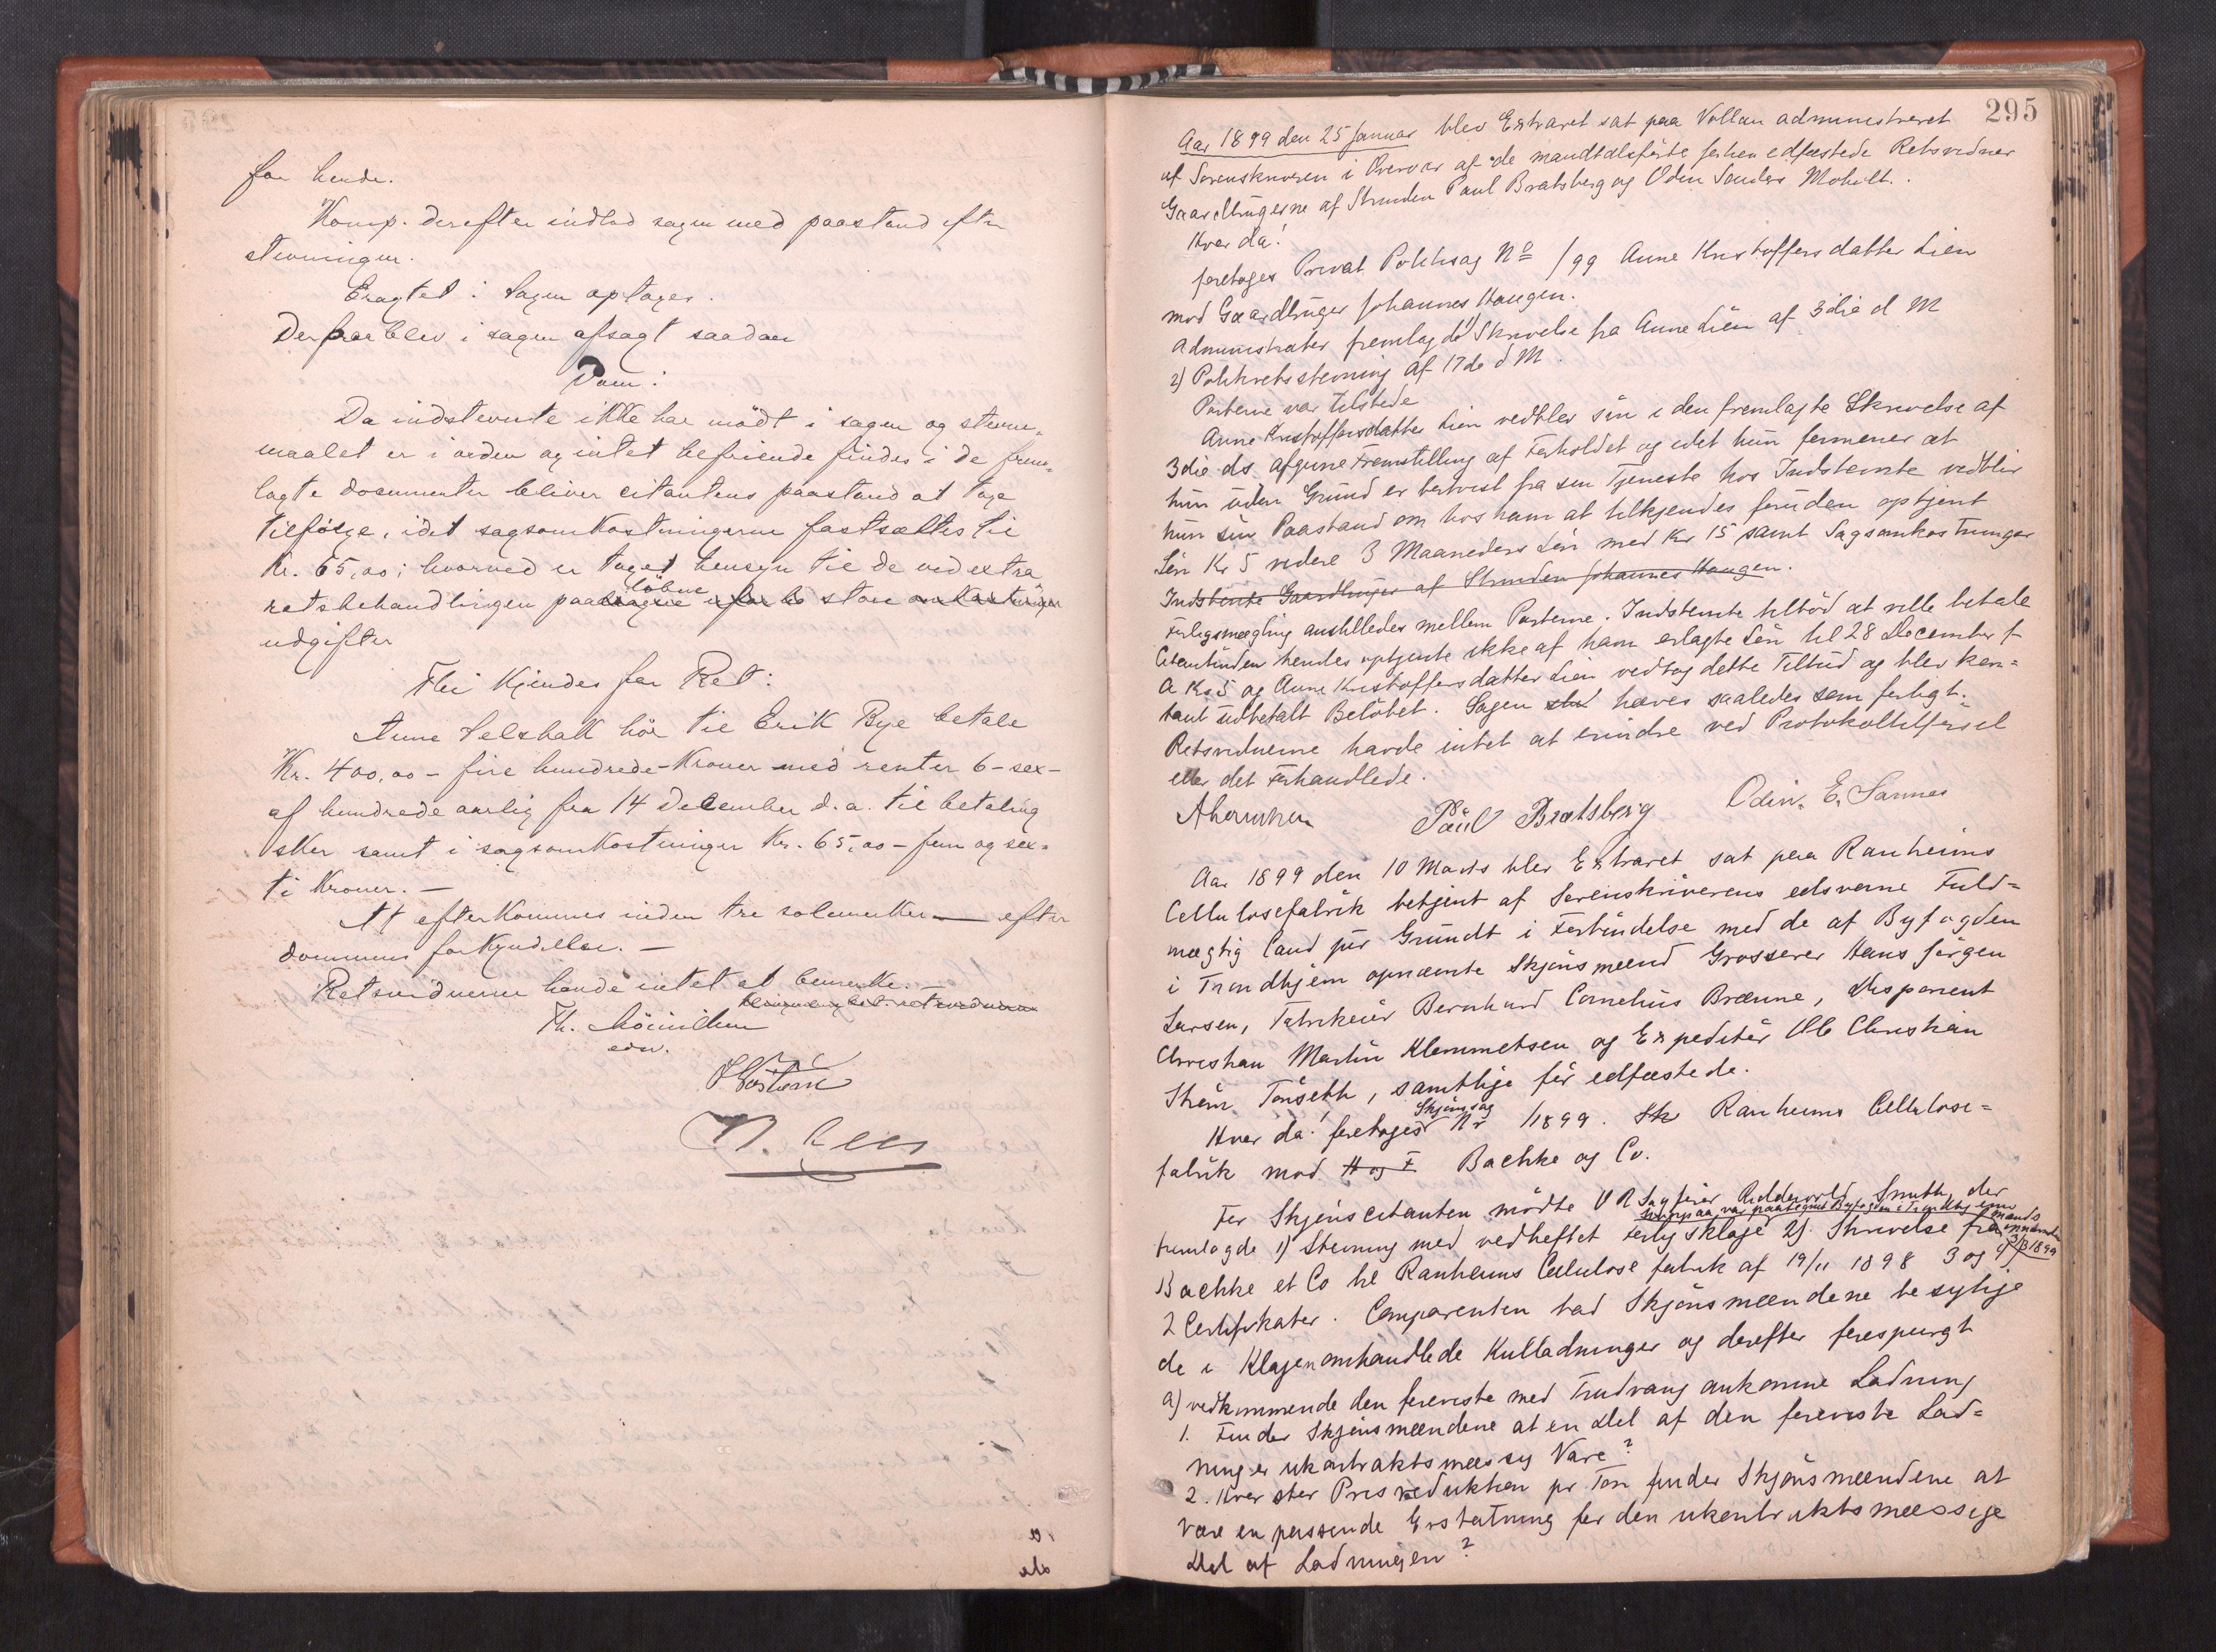 for hende.
Komp. derefter indlod sagen med paastand efter
stevningen.
Eragtet: Sagen optages.
Derpaa blev i sagen afsagt saadan
Dom:
Da indstevnte ikke har mödt i sagen og stevne-
maalet er i orden og intet befriende findes i de frem-
lagte documenter bliver citantens paastand at tage
tilfölge, idet sagsomkostningerne fastsættes til
Kr. 65,00; hvorved er taget hensyn til de ved extra
retsbehandlingen paalöbne store
udgifter
Thi kjendes for Ret:
Anne Selsbak bör til Erik Bye betale
Kr. 400,00 – fire hundrede – Kroner med renter 6 – sex –
af hundrede aarlig fra 14 December d. a. til betaling
sker samt i sagsomkostninger Kr. 65,00 – fem og sex-
ti Kroner. –
At efterkommes inden tre solemerker efter
dommens forkyndelse. –
Retsvidnerne havde intet at bemerke. –
Th.
edsv.
295
Aar 1899 den 25 Januar blev Extraret sat paa Vollan administreret
af Sorenskriveren i Overvær af de mandtalsförte forhen edfæstede Retsvidner
Gaardbrugerne af Strinden Paul Bratsberg og Odin Moholt.
Hvor da!
foretoges Privat Politisag No /99 Anne Kristoffersdatter Lien
mod Gaardbruger Johannes Haugen.
Administrator fremlagde 1) Skrivelse fra Anne Lien af 3die d M
2) Politiretsstevning af 17de d M.
Parterne var tilstede
Anne Kristoffersdatter Lien vedblev sin i den fremlagte Skrivelse af
3die ds. afgivne Fremstilling af Forholdet og idet hun formener at
hun uden Grund er bortvist fra sin Tjeneste hos Indstevnte vedblir
hun sin Paastand om hos ham at tilkjendes foruden optjent
Lön Kr 5 videre 3 Maaneders Lön med Kr 15 samt Sagsomkostninger
Indstevnte Gaardbruger af Strinden Johannes Haugen.
Forligsmægling anstilledes mellem Parterne. Indstevnte tilböd at ville betale
Citantinden hendes optjente ikke af ham erlagte Lön til 28 December f
A Kr 5 og Anne Kristoffersdatter Lien vedtog dette Tilbud og blev kon-
tant udbetalt Belöbet. Sagen hæves saaledes som forligt.
Retsvidnerne havde intet at erindre ved Protokoltilförsel
eller det Forhandlede.
Paul Bratsberg Odin. E. Sannes
Aar 1899 den 10 Marts blev Extraret sat paa Ranheims
Cellulosefabrik betjent af Sorenskriverens edsvorne Fuld-
mægtig Cand jur Grundt i Forbindelse med de af Byfogden
i Trondhjem opnævnte Skjönsmænd Grosserer Hans Jörgen
Larsen, Fabrikeier Bernhard Cornelius Brænne, Disponent
Christian Martin Klemmetsen og Expeditör Ole Christian
Ström Tönseth, samtlige för edfæstede.
Hvor da! foretoges Skjönssag Nr 1/1899. Ranheims Cellulose-
fabrik mod H og F Bachke og Co.
For Skjönscitanten mödte O R Sagförer Ridderwold Smith, der
hvorpaa var paategnet Byfogden i Trondhjems mænds
fremlagde 1) Stevning med vedheftet Forligsklage 2) Skrivelse fra
3/3 1899
Bachke et Co til Ranheims Cellulose fabrik af 19/11 1898 3 og 4)
2 Certifikater. Comparenten bad Skjönsmændene besigtige
de i Klagen omhandlede Kulladninger og derefter forespurgt
a) vedkommende den foreviste med Trudvang ankomne Ladning
1. Finder Skjönsmændene at en Del af den foreviste Lad-
ning er ukontraktsmæssig Vare?
2. Hvor stor Prisreduktion pr Ton finder Skjönsmændene at
være en passende Erstatning for den ukontraktsmæssige
Del af Ladningen?